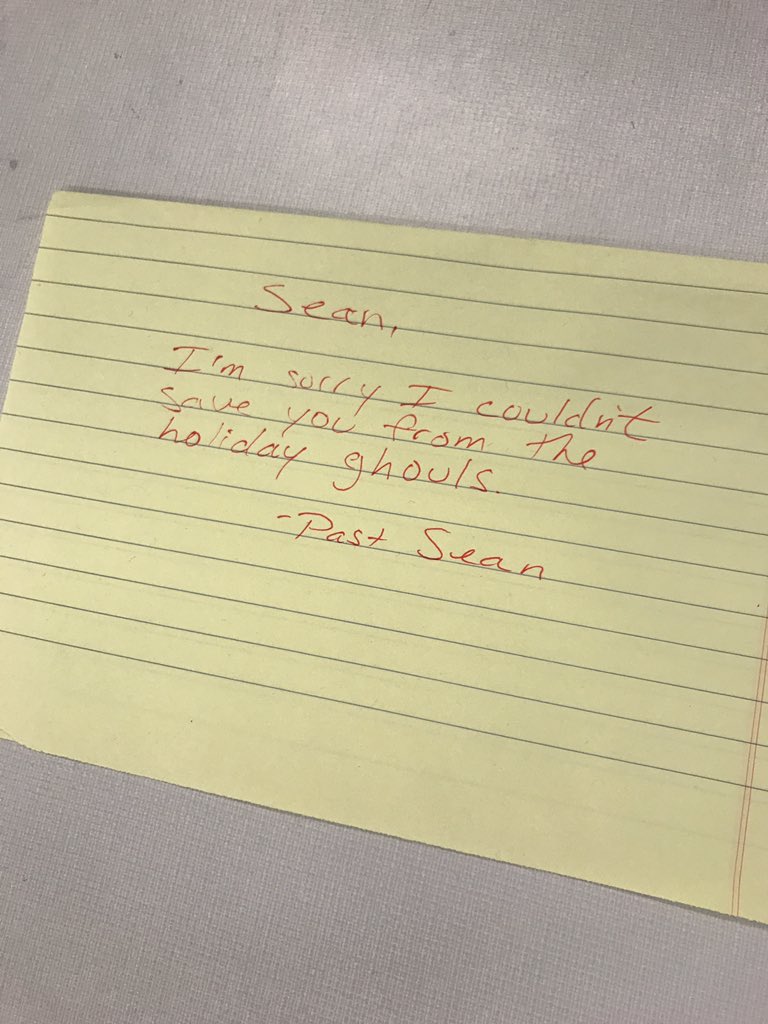 Sean,
I'm sorry I couldn't
save you from the
holiday ghouls.
-Past Sean